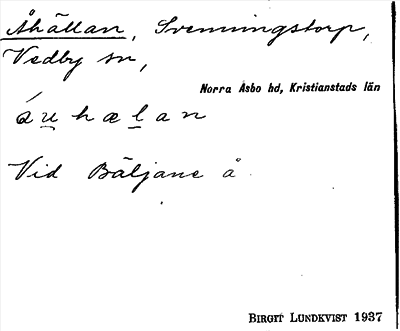 Åhällan, Svenningstorp,
Vedby sn,
Norra Åsbo hd, Kristianstads län
áu̲hæl̲an
Vid Bäljane å
BIRGIT LUNDKVIST 1937